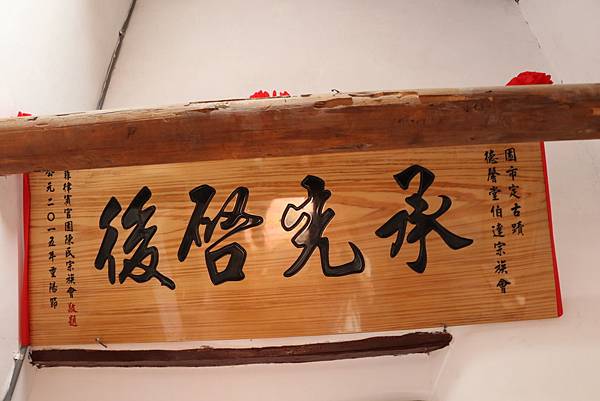 園市定古蹟
德馨堂伯達宗族會
承先啓後
菲律賓官園陳氏宗族會敬題
公元二〇一五年重陽節